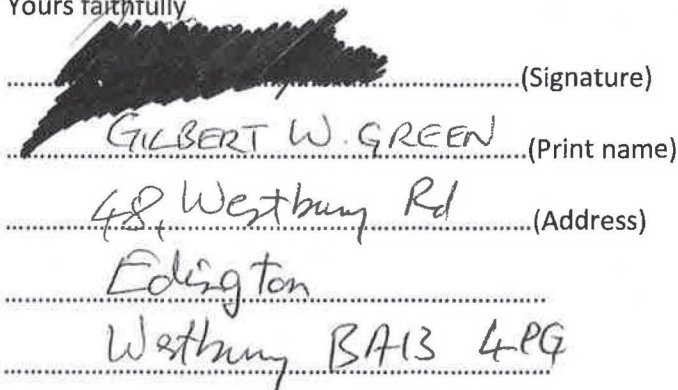 Yours faithfully
(Signature)
GILBERT W. GREEN (Print name)
48, Westbury Rd (Address)
Edington
Westbury BA13 4PG